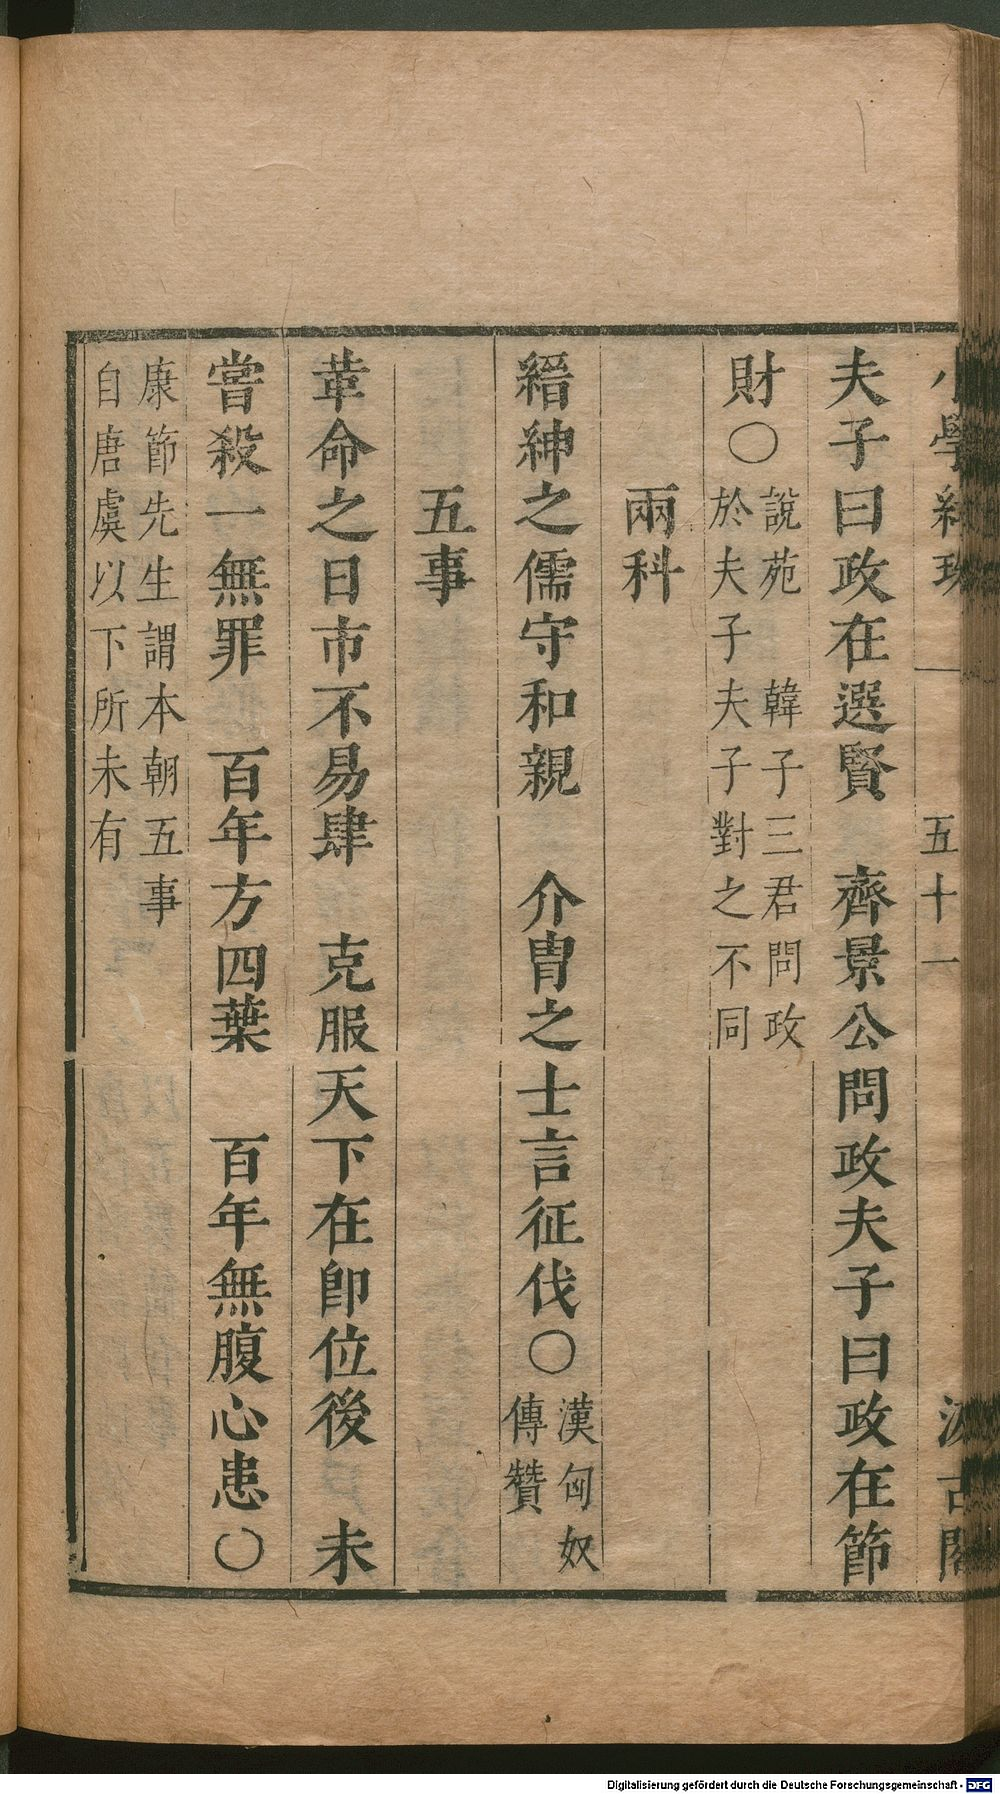 小學紺珠 五十一 汲古閣
夫子曰政在選賢 齊景公問政夫子曰政在節
財○說苑 韓子三君問政
於夫子夫子對之不同
兩科
縉紳之儒守和親 介冑之士言征伐○漢匈奴
傳贊
五事
革命之日市不易肆 克服天下在卽位後 未
嘗殺一無罪 百年方四葉 百年無腹心患○
康節先生謂本朝五事
自唐虞以下所未有
Digitalisierung gefördert durch die Deutsche Forschungsgemeinschaft - DFG